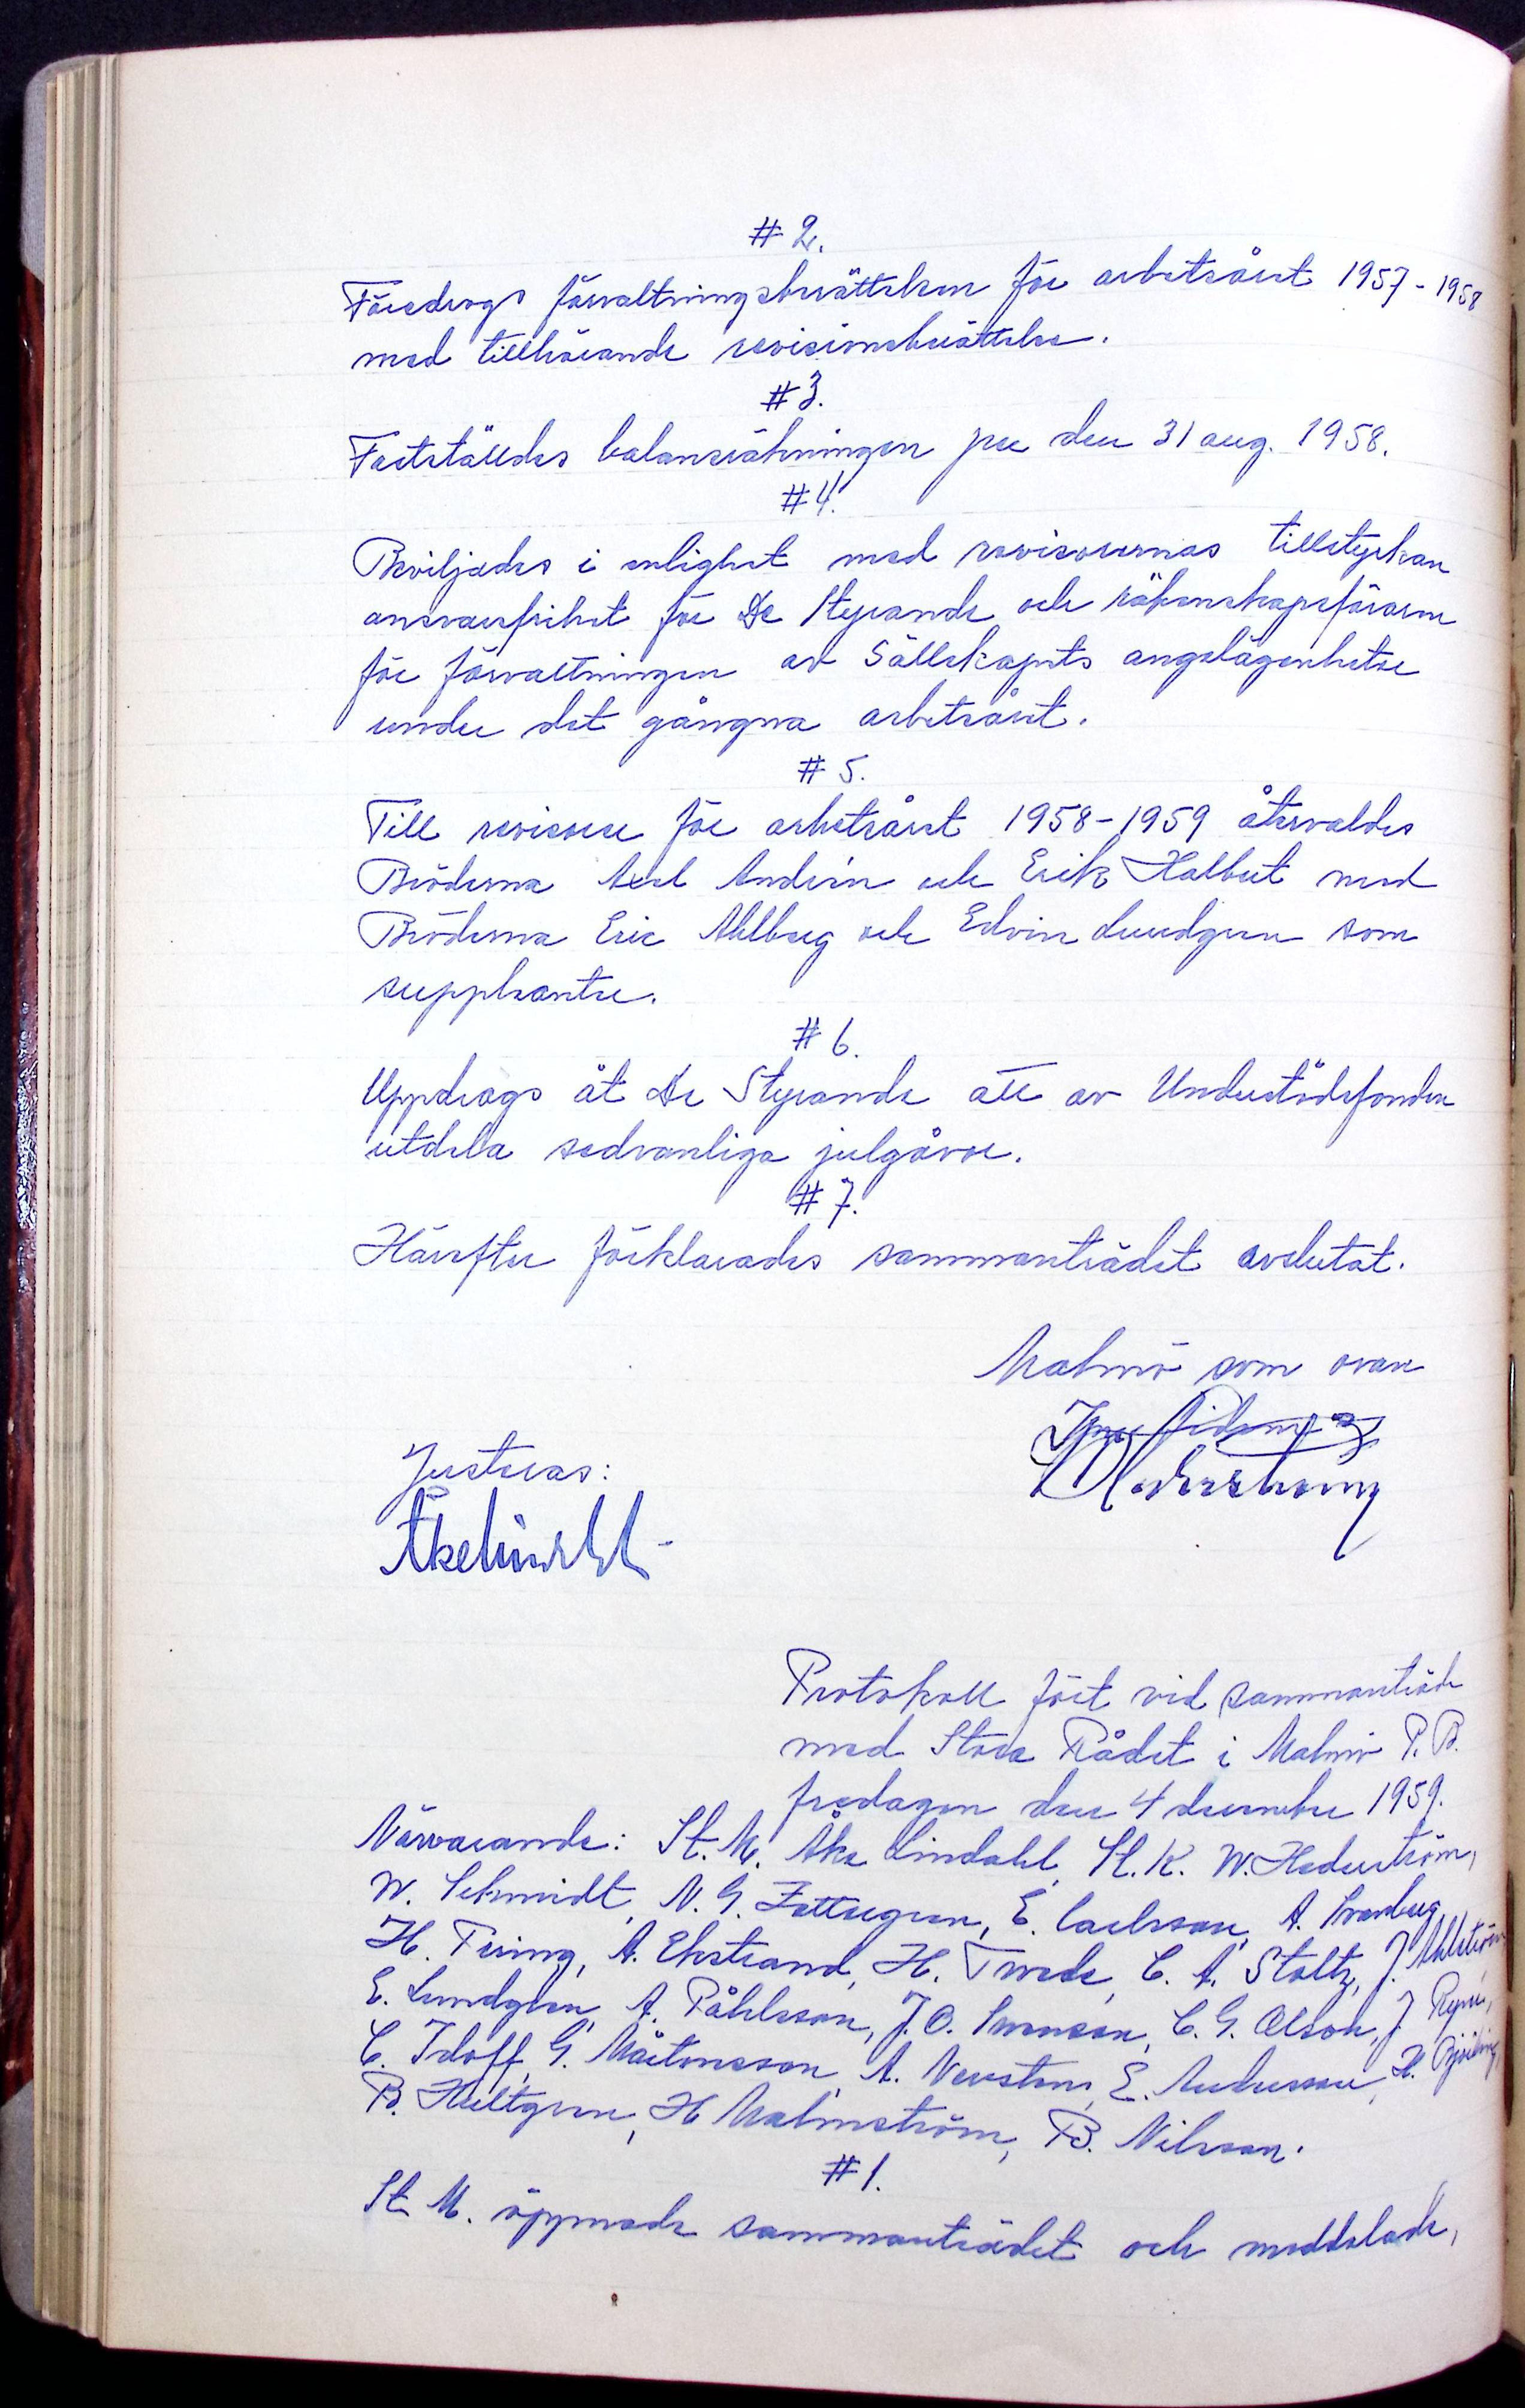 # 2.
Föredrogs förvaltningsberättelsen för arbetsåret 1957-1958
med tillhörande revisionsberättelse.
# 3.
Fastställdes balansräkningen per den 31 aug. 1958.
# 4.
Beviljades i enlighet med revisorernas tillstyrkan
ansvarsfrihet för De Styrande och räkenskapsföraren
för förvaltningen av Sällskapets angelägenheter
under det gångna arbetsåret.
# 5.
Till revisorer för arbetsåret 1958-1959 återvaldes
Bröderna Axel Andrén och Erik Halbert med
Bröderna Eric Ahlberg och Edvin Lundgren som
suppleanter.
# 6.
Uppdrogs åt De Styrande att av Understödsfonden
utdela sedvanliga julgåvor.
# 7.
Härefter förklarades sammanträdet avslutat.
Malmö som ovan
Justeras:
Åke Lindahl
Protokoll fört vid sammanträde
med Stora Rådet i Malmö P. B.
fredagen den 4 december 1959.
Närvarande: St. M. Åke Lindahl, St. K. W. Hederström,
W. Schmidt, N. G. Zettergren, E. Carlsson, A. Svanberg,
H. Tering, A. Ekstrand, H. Twede, C. A. Stoltz, J. Ahlström,
E. Lundgren, A. Påhlsson, J. O. Svensson, C. G. Olson, J.
C. Idoff, G. Mårtensson, A. E. Andersson, H. Björling,
B. Hultgren, H Malmström, B. Nilsson.
# 1.
St M. öppnade sammanträdet och meddelade,